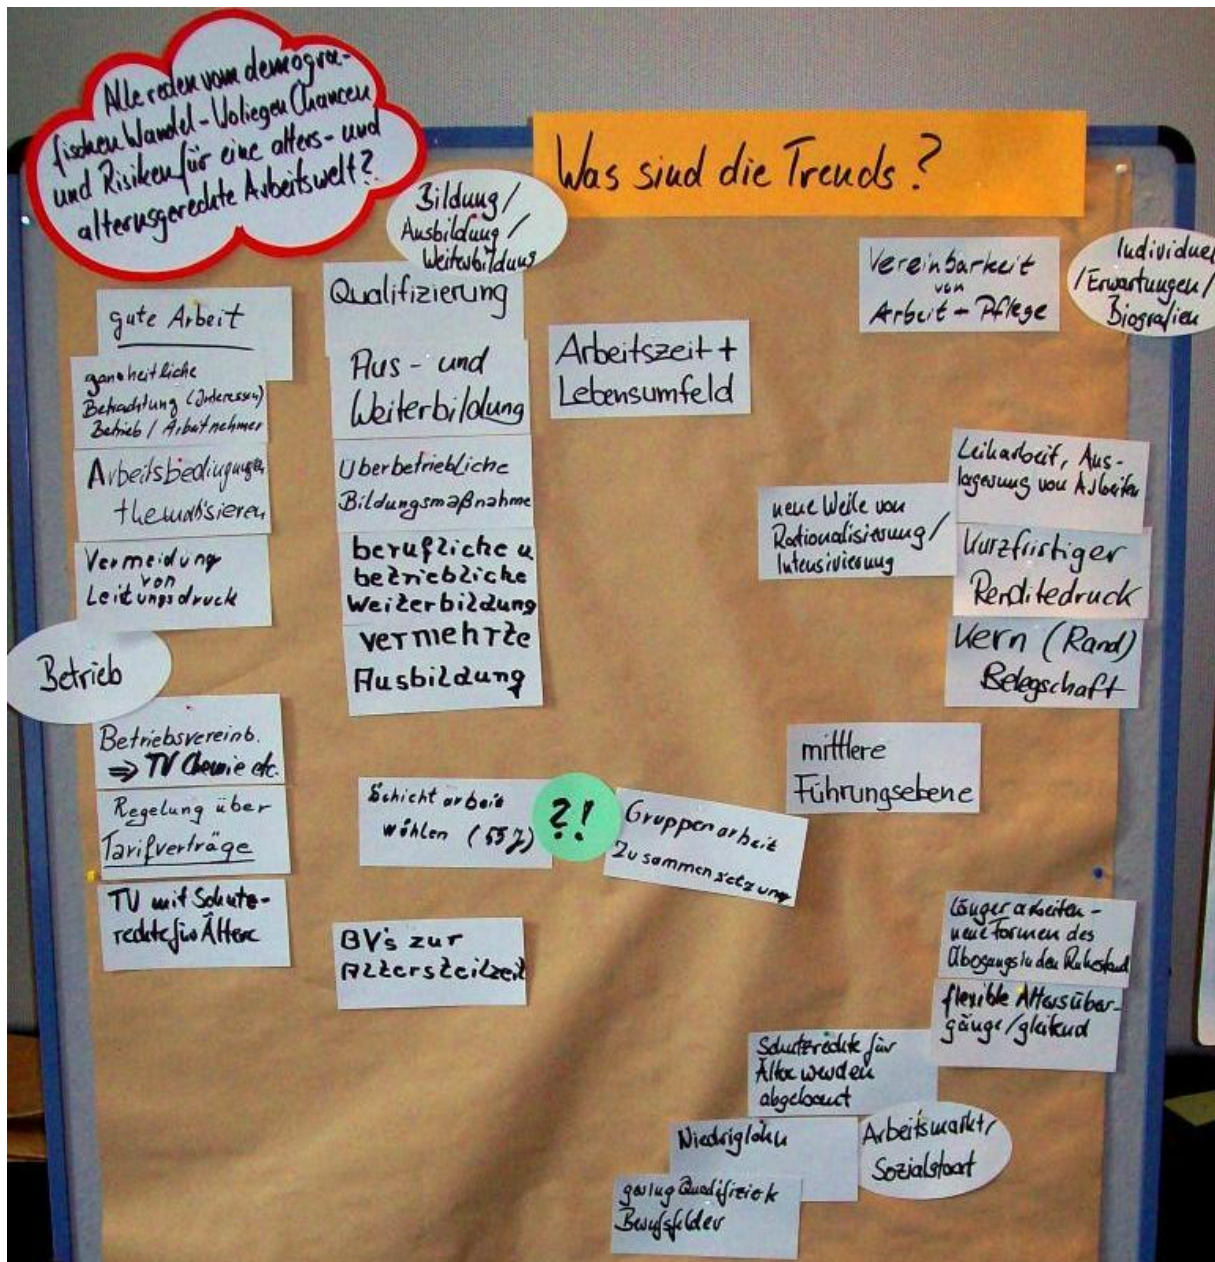 Alle reden vom demogra-
fischen Wandel - Wo liegen Chancen
und Risiken für eine alters- und
alternsgerechte Arbeitswelt?
Was sind die Trends?
Bildung/
Ausbildung/
Weiterbildung
gute Arbeit
ganzheitliche
Betrachtung (Interessen)
Betrieb / Arbeitnehmer
Arbeitsbedingungen
thematisieren
Vermeidung
von
Leitungsdruck
Betrieb
Betriebsvereinb.
⇒ TV Chemie etc.
Regelung über
Tarifverträge
TV mit Schutz-
rechte für Ältere
Qualifizierung
Aus- und
Weiterbildung
Überbetriebliche
Bildungsmaßnahme
berufliche u
betriebliche
Weiterbildung
vermehrte
Ausbildung
Schichtarbeit
wählen (55 J)
?!
Gruppenarbeit
Zusammensetzung
BV's zur
Altersteilzeit
Arbeitszeit +
Lebensumfeld
Vereinbarkeit
von
Arbeit + Pflege
Individuel
/Erwartungen/
Biografien
neue Welle von
Rationalisierung/
Intensivierung
Leiharbeit, Aus-
lagerung von Arbeiten
Kurzfristiger
Renditedruck
Kern (Rand)
Belegschaft
mittlere
Führungsebene
länger arbeiten -
neue Formen des
Übergangs in den Ruhestand
flexible Altersüber-
gänge/gleitend
Schutzrechte für
Ältere werden
abgebaut
Niedriglohn
Arbeitsmarkt/
Sozialstaat
gering Qualifizierte
Berufsfelder